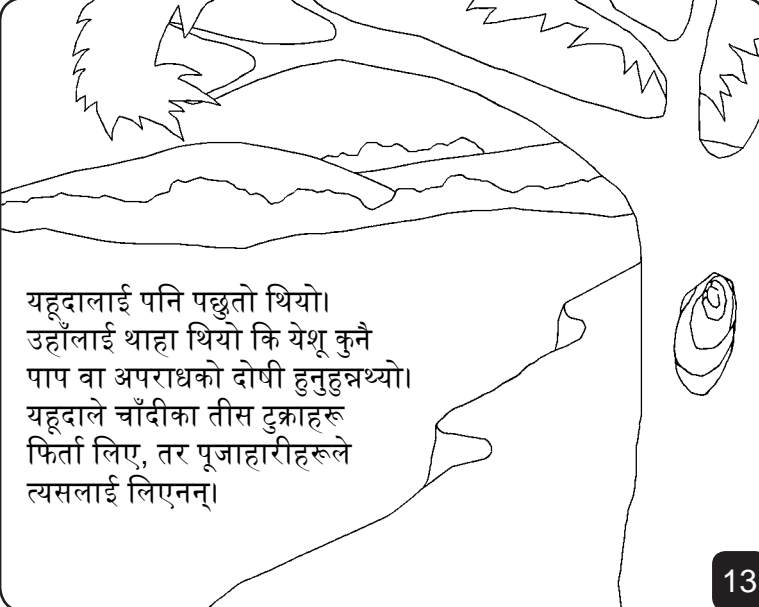 यहूदालाई पनि पछुतो थियो।
उहाँलाई थाहा थियो कि येशू कुनै
पाप वा अपराधको दोषी हुनुहुन्नथ्यो।
यहूदाले चाँदीका तीस टुक्राहरू
फिर्ता लिए, तर पूजाहारीहरूले
त्यसलाई लिएनन्।
13